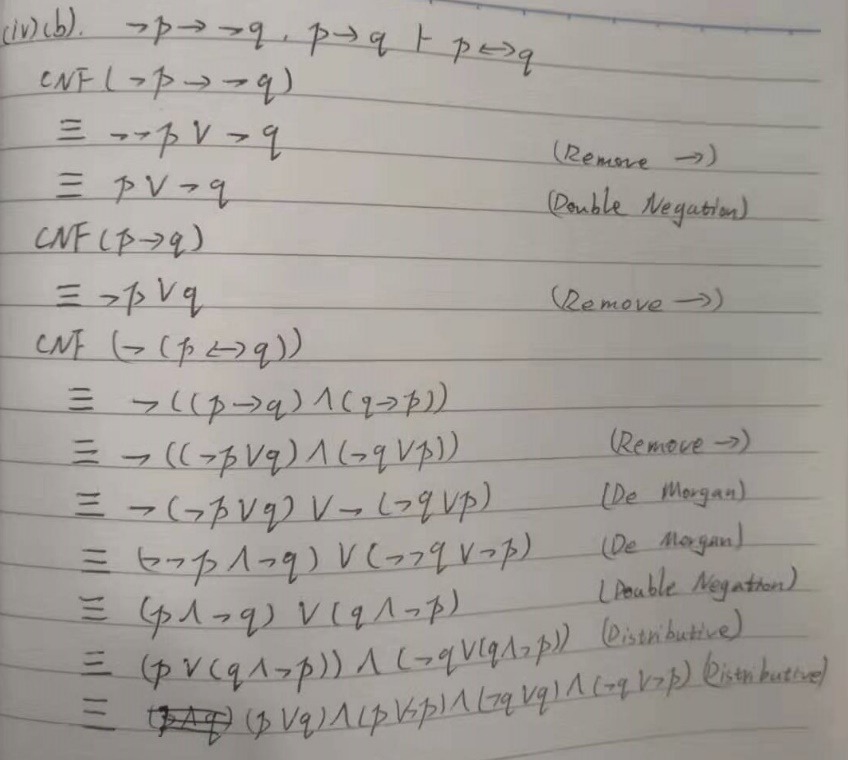 (iv)(b). ¬p→¬q, p→q ⊢ p↔q
CNF(¬p→¬q)
≡ ¬¬p∨¬q (Remove →)
≡ p∨¬q (Double Negation)
CNF(p→q)
≡ ¬p∨q (Remove →)
CNF (¬(p↔q))
≡ ¬((p→q)∧(q→p))
≡ ¬((¬p∨q)∧(¬q∨p)) (Remove →)
≡ ¬(¬p∨q)∨¬(¬q∨p) (De Morgan)
≡ (¬¬p∧¬q)∨(¬¬q∨¬p) (De Morgan)
≡ (p∧¬q)∨(q∧¬p) (Double Negation)
≡ (p∨(q∧¬p))∧(¬q∨(q∧¬p)) (Distributive)
≡ (p∨q)∧(p∨¬p)∧(¬q∨q)∧(¬q∨¬p) (Distributive)